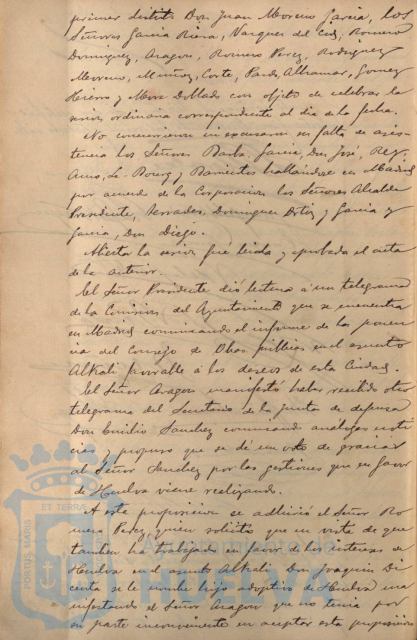 primer distrito Don Juan Moreno Garcia, los
Señores Garcia Riera, Vazquez del Cid, Romero
Dominguez, Aragon, Romero Perez, Rodriguez
Moreno, Muñoz, Corte, Pardo, Alhamar, Gomez
Hierro y Mora Doblado con objeto de celebrar la
sesion ordinaria correspondiente al dia de la fecha.
No concurrieron ni escusaron su falta de asis-
tencia los Señores Barba, Garcia, Don José, Rey
y hallándose en Madrid
por acuerdo de la Corporacion los Señores Alcalde
Presidente, Terrades, Dominguez Ortiz y Garcia y
Garcia, Don Diego.
Abierta la sesion fué leida y aprobada el acta
de la anterior.
El Señor Presidente dió lectura á un telegrama
de la Comision del Ayuntamiento que se encuentra
en Madrid comunicando el informe de la ponen-
cia del Consejo de Obras públicas en el asunto
Alkali favorable á los deseos de esta Ciudad.
El Señor Aragon manifestó haber recibido otro
telegrama del Secretario de la Junta de defensa
Don Emilio Sanchez comunicando análogas noti-
cias y propuso que se dé un voto de gracias
al Señor Sanchez por las gestiones que en favor
de Huelva viene realizando.
A esta proposicion se adhirió el Señor Ro-
mero Perez quien solicitó que en vista de que
tambien ha trabajado en favor de los intereses de
Huelva en el asunto Alkali Don Joaquin Di-
centa se le nombre hijo adoptivo de Huelva ma-
nifestando el Señor Aragon que no tenia por
su parte inconveniente en aceptar esta proposicion
PORTUS MARIS
ET TERRAE
Ayuntamiento de
HUELVA